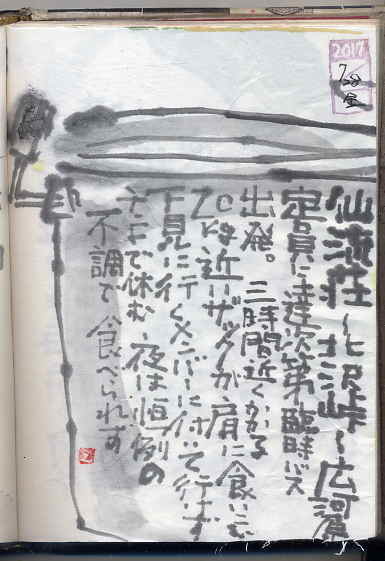 2017
7/28
金
仙流荘〜北沢峠〜広河原
定員に達次第臨時バス
出発。 三時間近くかかる
20kg近いザックが肩に食いこむ
下見に行くメンバーに付いて行けず
テントで休む 夜は恒例の
不調で食べられず